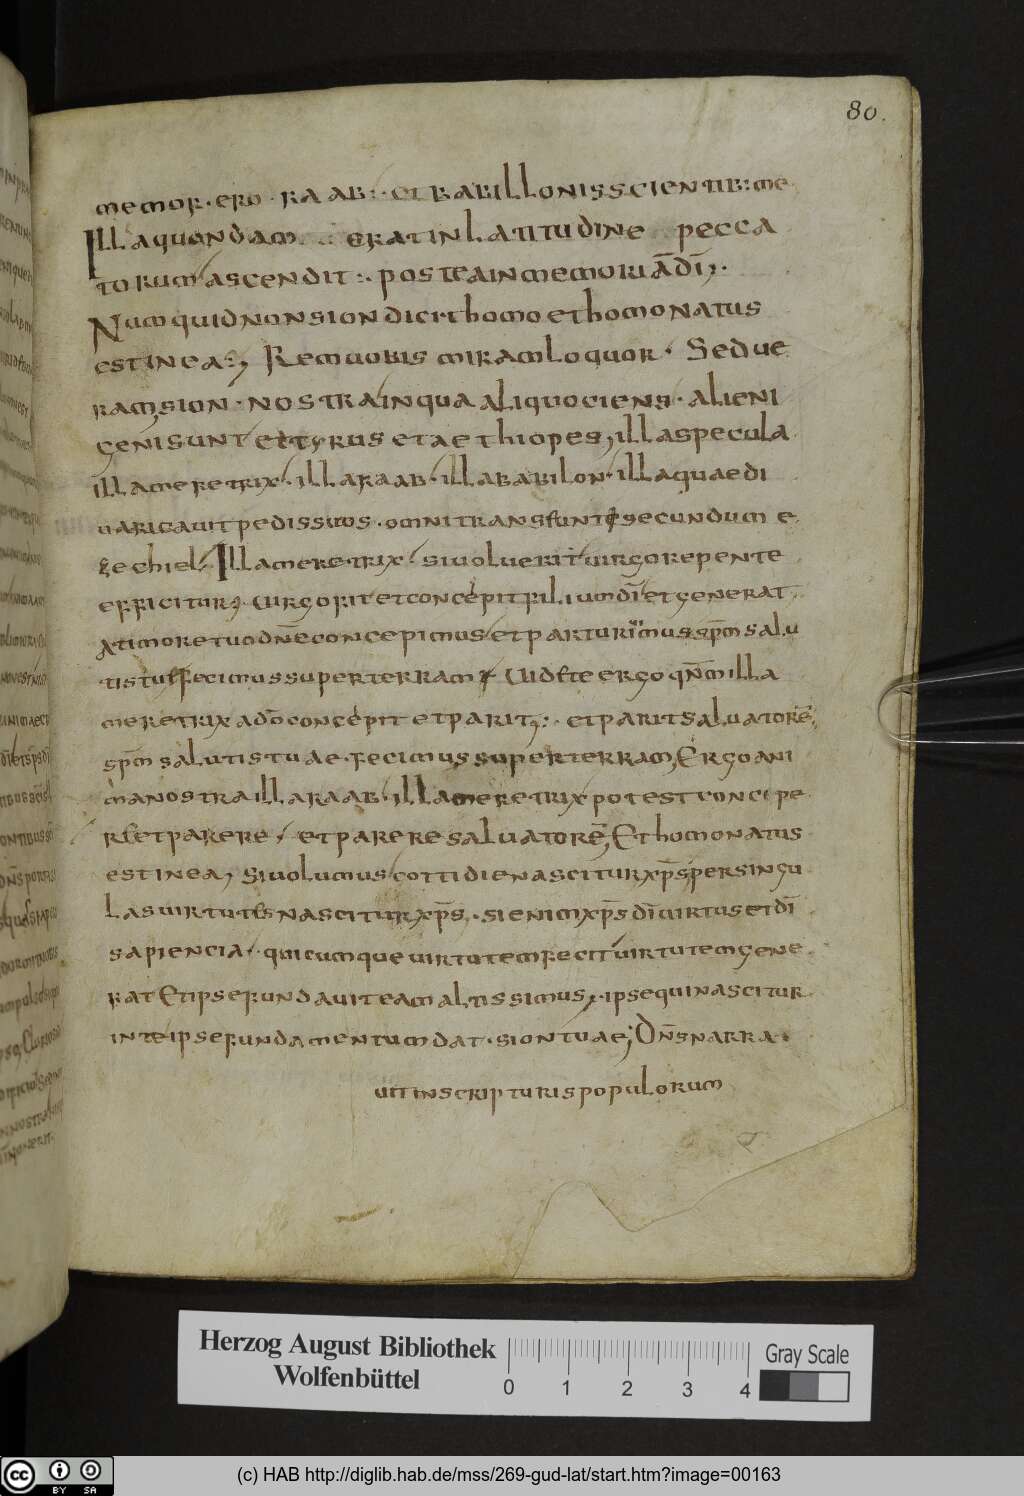 80.
memor · ero · raab : · et babillonis scientib: me
Illa quondam erat in latitudine pecca
torum ascendit : · postea in memoria dī; ·
Numquid non sion dicit homo et homo natus
est in ea : ; Rem uobis miram loquor · Sed ue
ram; sion · nostra in qua aliquociens · alieni
geni sunt et tyrus et aethiopes; illa specula
illa meretrix · illa raab · illa babilon · illa quae di
uaricauit pedis suos · omni transeunti secundum e
zechiel · Illa meretrix · si uoluerit uirgo repente
efficitur; uirgo fit et concepit filium dī et generat
A timore tuo dn̄e concepimus et parturiimus sp̄m salu
tis tuę fecimus super terram ; Uidete ergo qn̄m illa
meretrix a dō concepit et parit; : · et parit saluatorē;
sp̄m salutis tuae · fecimus super terram; Ergo ani
ma nostra illa raab · illa meretrix potest concipe
re et parere · et parere saluatorē; Et homo natus
est in ea; Si uolumus cottidie nascitur xp̄s; per singu
las uirtutes nascitur xp̄s; · si enim xp̄s dī uirtus et dī
sapiencia · quicumque uirtutem fecit uirtutem gene
rat Et ipse fundauit eam altissimus; · ipse qui nascitur
in te ipse fundamentum dat · sion tuae; Dn̄s narra
uit in scripturis populorum
Herzog August Bibliothek
Wolfenbüttel
0 1 2 3 4
Gray Scale
cc BY SA
(c) HAB http://diglib.hab.de/mss/269-gud-lat/start.htm?image=00163